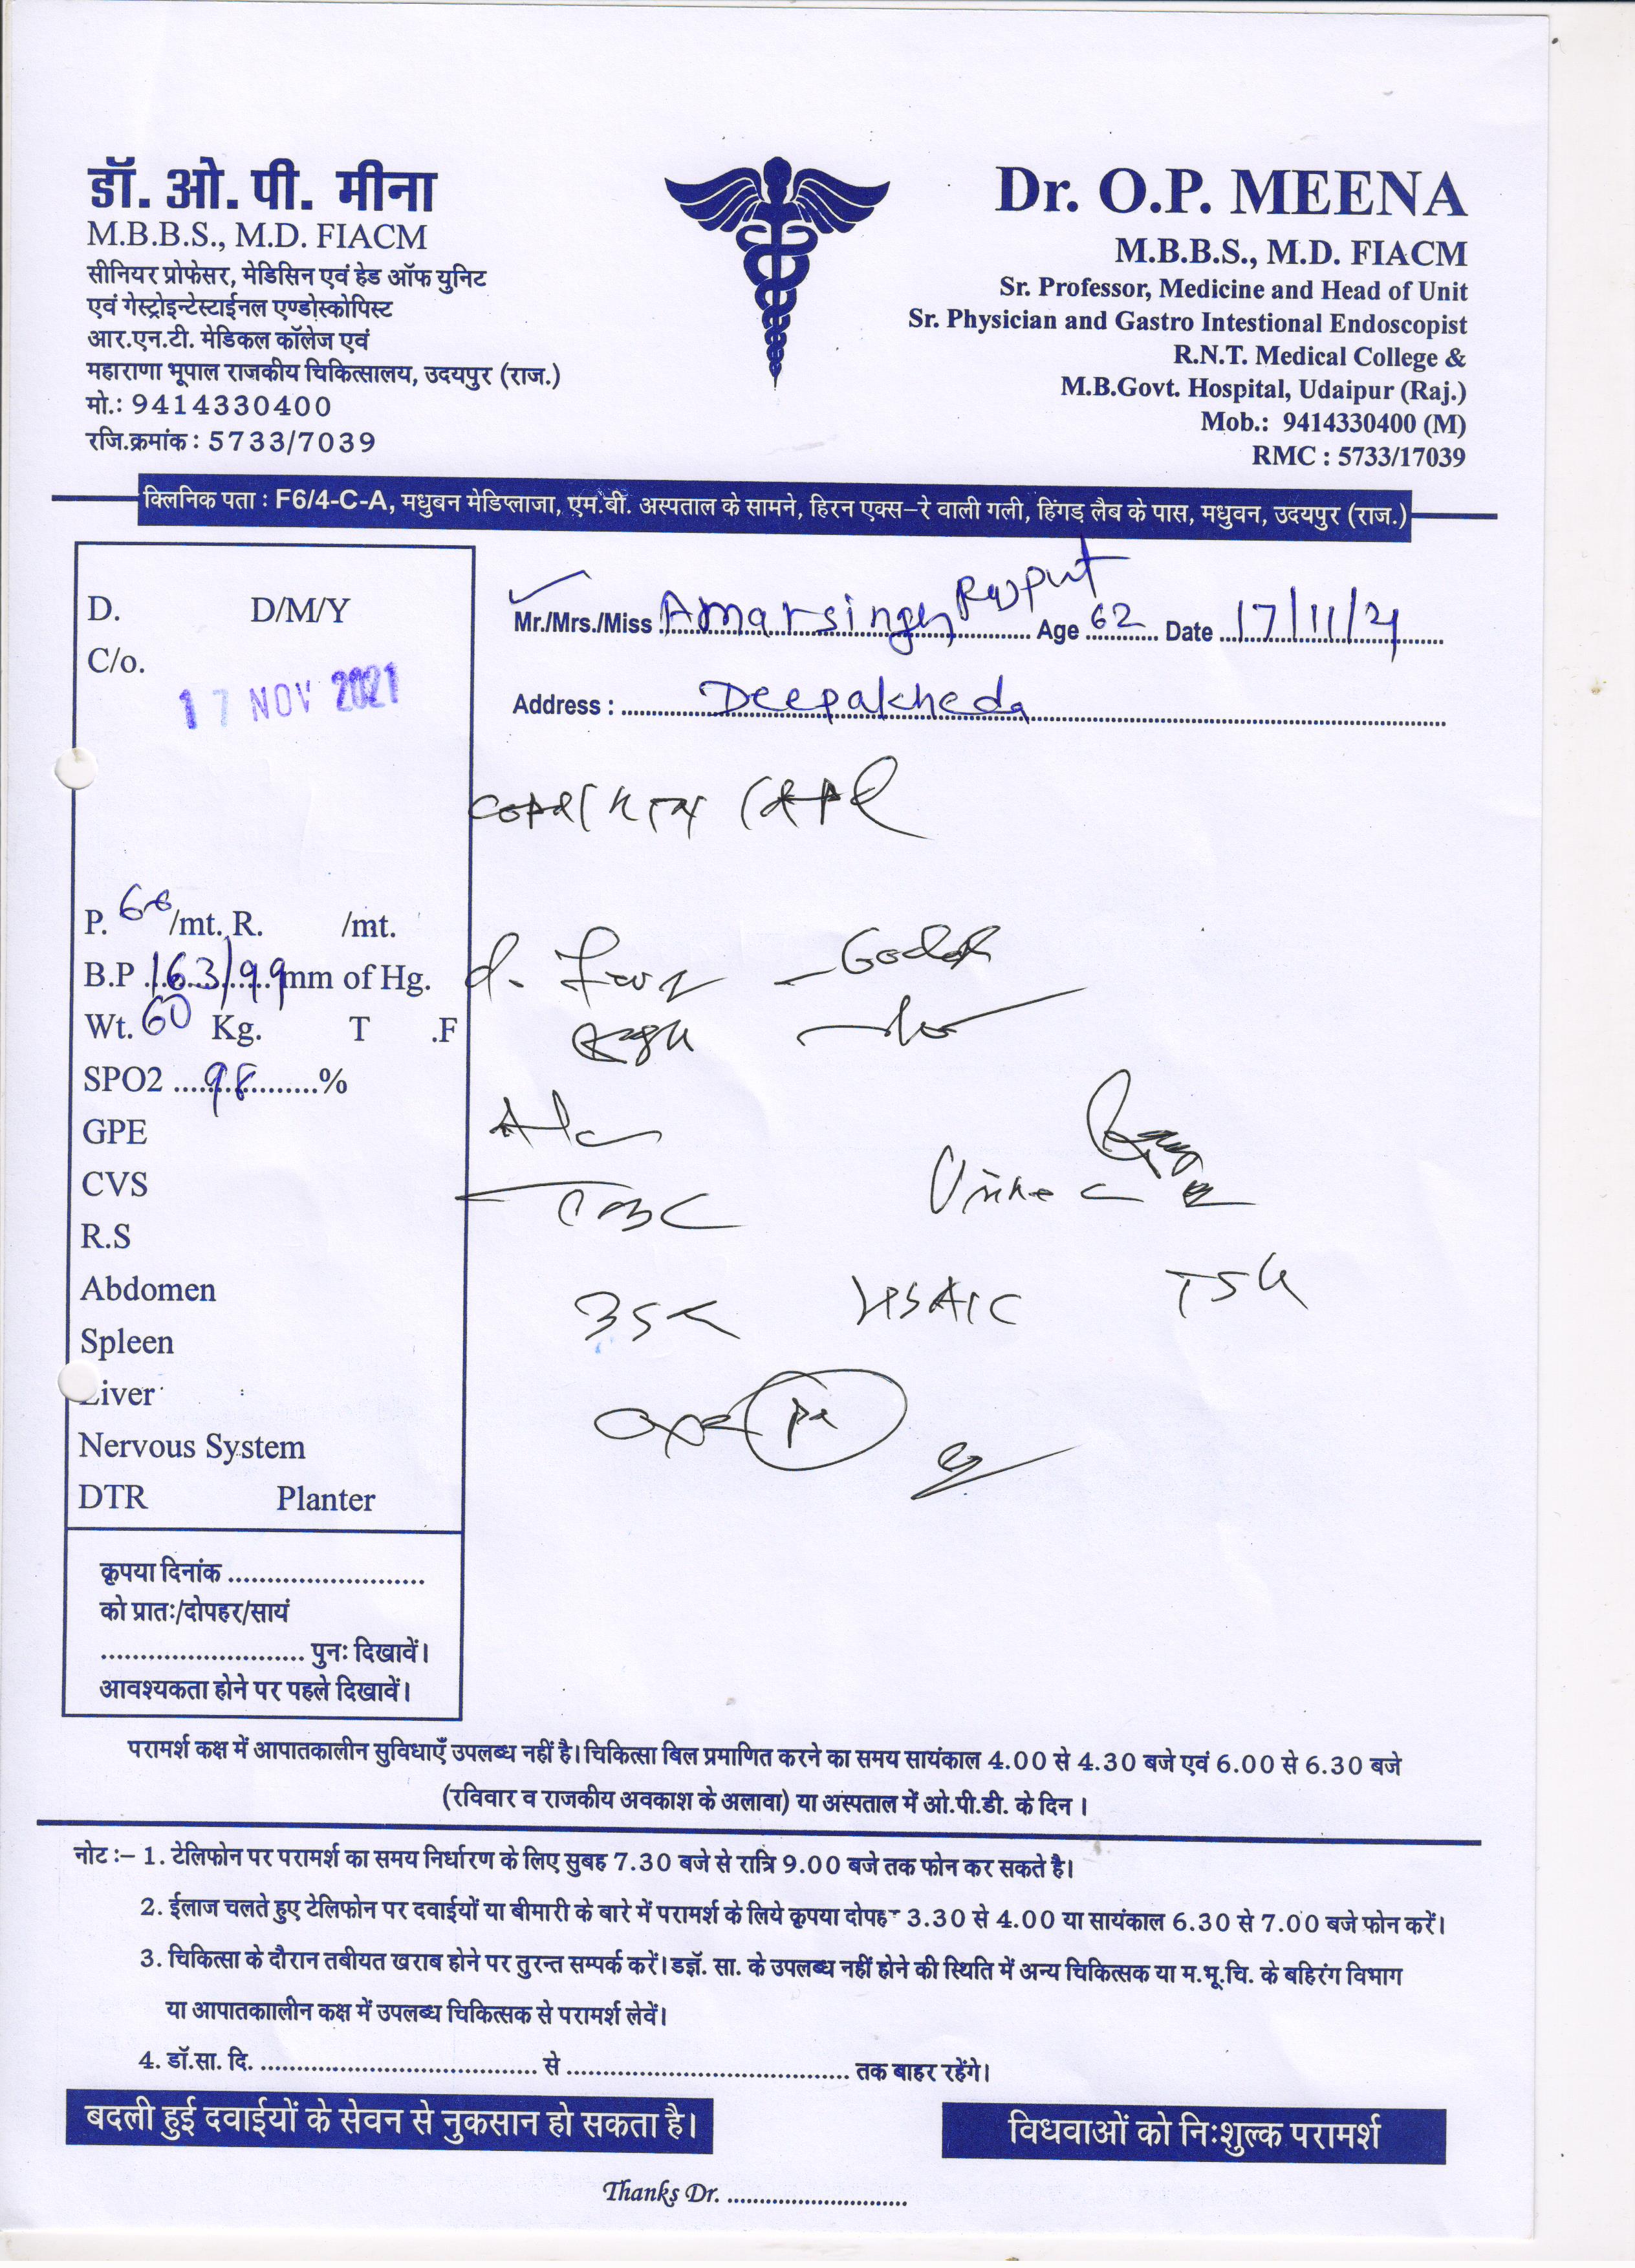 डॉ. ओ. पी. मीना
M.B.B.S., M.D. FIACM
सीनियर प्रोफेसर, मेडिसिन एवं हेड ऑफ युनिट
एवं गेस्ट्रोइन्टेस्टाईनल एण्डोस्कोपिस्ट
आर.एन.टी. मेडिकल कॉलेज एवं
महाराणा भूपाल राजकीय चिकित्सालय, उदयपुर (राज.)
मो.: 9414330400
रजि.क्रमांक : 5733/7039
Dr. O.P. MEENA
M.B.B.S., M.D. FIACM
Sr. Professor, Medicine and Head of Unit
Sr. Physician and Gastro Intestional Endoscopist
R.N.T. Medical College &
M.B.Govt. Hospital, Udaipur (Raj.)
Mob.: 9414330400 (M)
RMC : 5733/17039
क्लिनिक पता : F6/4-C-A, मधुबन मेडिप्लाजा, एम.बी. अस्पताल के सामने, हिरन एक्स-रे वाली गली, हिंगड़ लैब के पास, मधुवन, उदयपुर (राज.)
D. D/M/Y
C/o.
17 NOV 2021
Mr./Mrs./Miss Amarsingh Rajput Age 62 Date 17/11/21
Address : Deepakheda
P. /mt. R. /mt.
B.P 163/99 mm of Hg.
Wt. 60 Kg. T .F
SPO2 98 %
GPE
CVS
R.S
Abdomen
Spleen
Liver
Nervous System
DTR Planter
CBC
Urine C
HBA1C
कृपया दिनांक ..........................
को प्रातः/दोपहर/सायं
........................... पुनः दिखावें।
आवश्यकता होने पर पहले दिखावें।
परामर्श कक्ष में आपातकालीन सुविधाएँ उपलब्ध नहीं है। चिकित्सा बिल प्रमाणित करने का समय सायंकाल 4.00 से 4.30 बजे एवं 6.00 से 6.30 बजे
(रविवार व राजकीय अवकाश के अलावा) या अस्पताल में ओ.पी.डी. के दिन ।
नोट :– 1. टेलिफोन पर परामर्श का समय निर्धारण के लिए सुबह 7.30 बजे से रात्रि 9.00 बजे तक फोन कर सकते है।
2. ईलाज चलते हुए टेलिफोन पर दवाईयों या बीमारी के बारे में परामर्श के लिये कृपया दोपह 3.30 से 4.00 या सायंकाल 6.30 से 7.00 बजे फोन करें।
3. चिकित्सा के दौरान तबीयत खराब होने पर तुरन्त सम्पर्क करें। डॉ. सा. के उपलब्ध नहीं होने की स्थिति में अन्य चिकित्सक या म.भू.चि. के बहिरंग विभाग
या आपातकाालीन कक्ष में उपलब्ध चिकित्सक से परामर्श लेवें।
4. डॉ.सा. दि. .................................... से ..................................... तक बाहर रहेंगे।
बदली हुई दवाईयों के सेवन से नुकसान हो सकता है।
विधवाओं को निःशुल्क परामर्श
Thanks Dr. ...........................